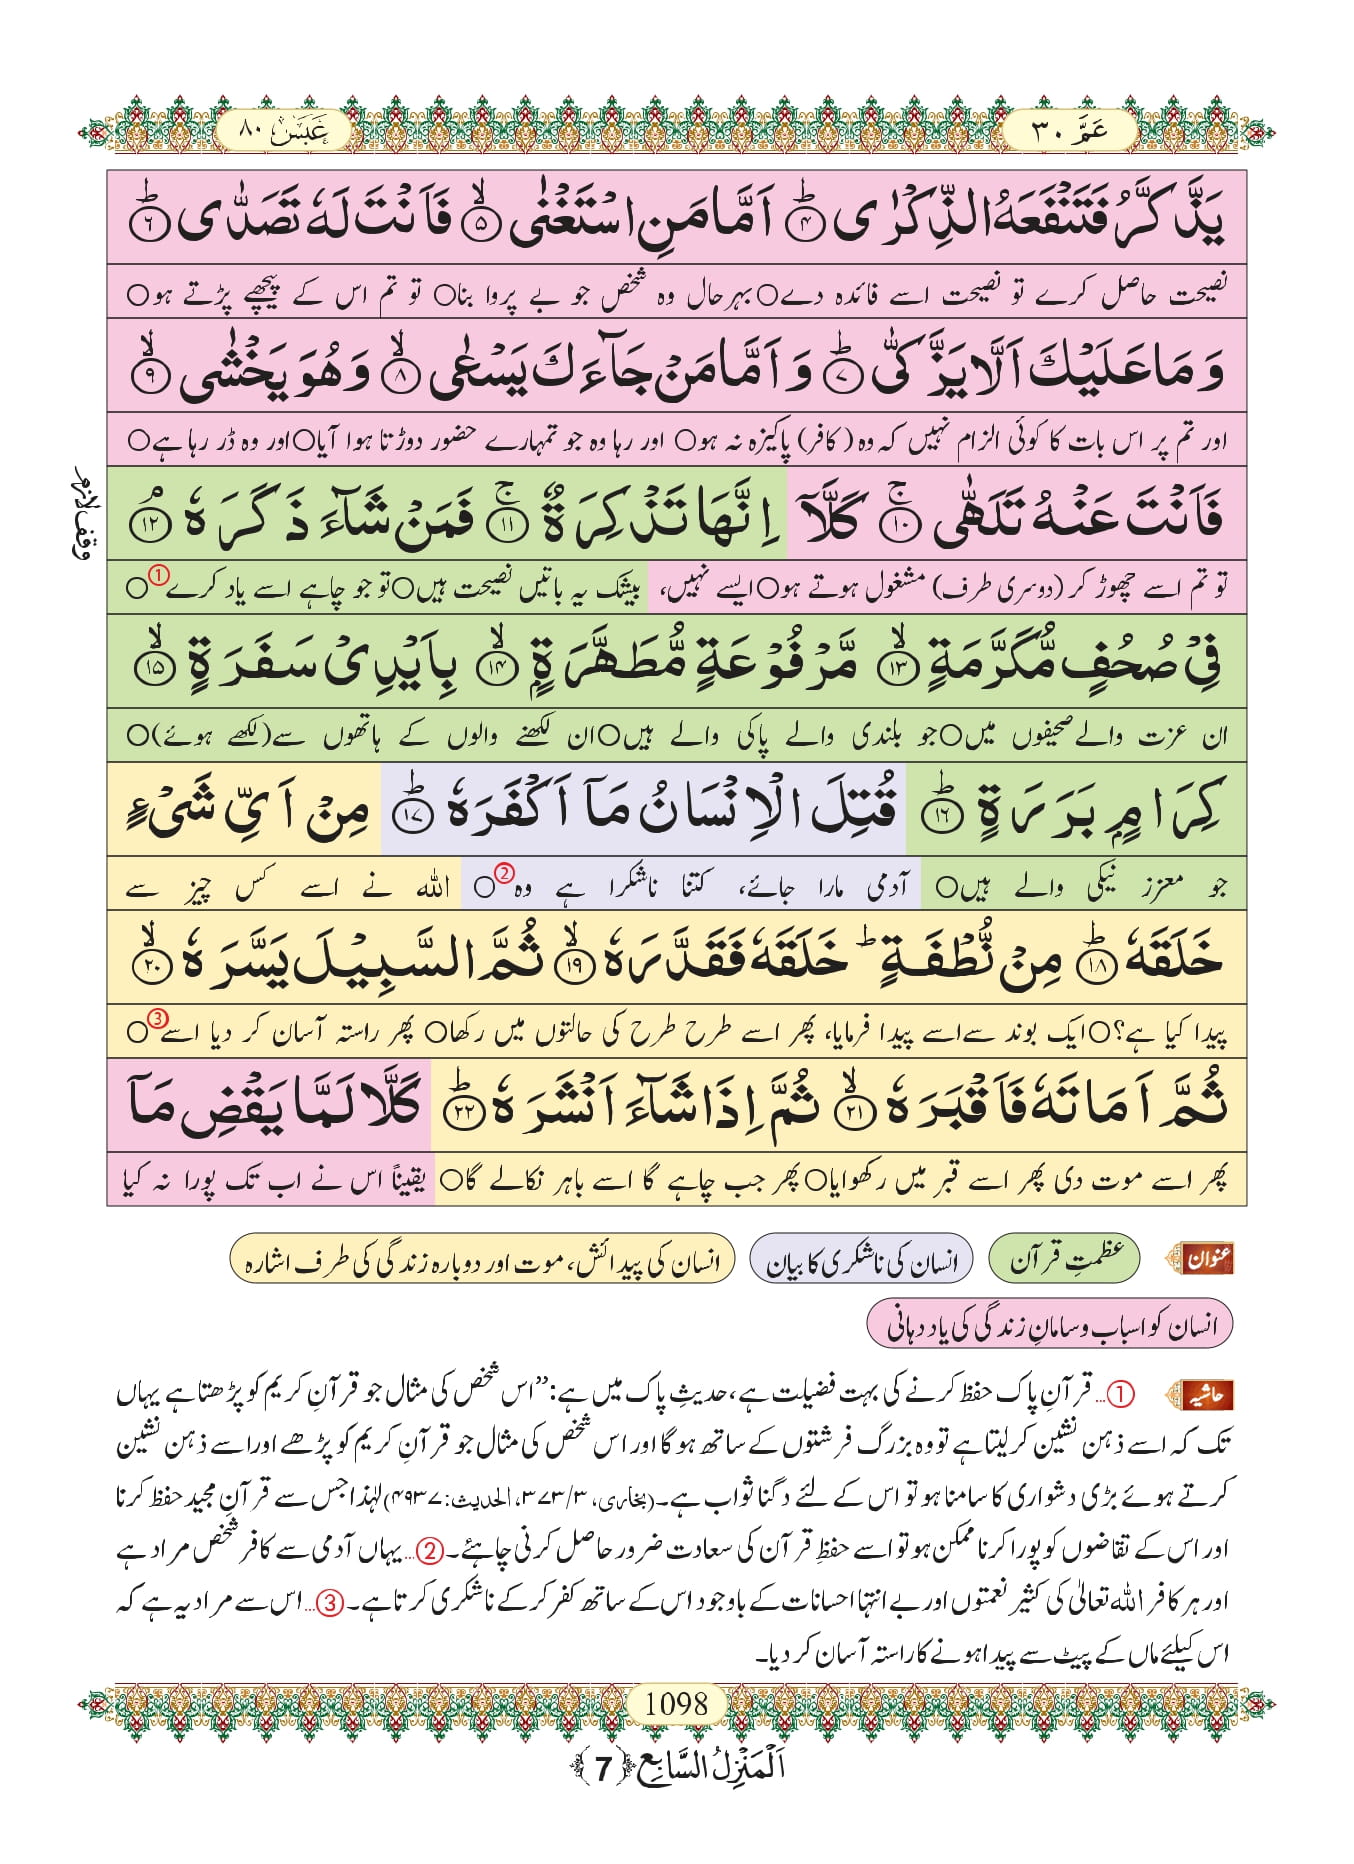 عَمَّ ٣٠
عَبَسَ ٨٠
يَذَّكَّرُ فَتَنْفَعَهُ الذِّكْرٰى ﴿۴﴾ؕ اَمَّا مَنِ اسْتَغْنٰى ﴿۵﴾ۙ فَاَنْتَ لَهٗ تَصَدّٰى ﴿۶﴾ؕ
نصیحت حاصل کرے تو نصیحت اسے فائدہ دے○ بہرحال وہ شخص جو بے پروا بنا○ تو تم اس کے پیچھے پڑتے ہو○
وَ مَا عَلَيْكَ اَلَّا يَزَّكّٰى ﴿۷﴾ؕ وَ اَمَّا مَنْ جَآءَكَ يَسْعٰى ﴿۸﴾ۙ وَ هُوَ يَخْشٰى ﴿۹﴾ۙ
اور تم پر اس بات کا کوئی الزام نہیں کہ وہ (کافر) پاکیزہ نہ ہو○ اور رہا وہ جو تمہارے حضور دوڑتا ہوا آیا○ اور وہ ڈر رہا ہے○
فَاَنْتَ عَنْهُ تَلَهّٰى ﴿۱۰﴾ۚ كَلَّاۤ اِنَّهَا تَذْكِرَةٌ ﴿۱۱﴾ۚ فَمَنْ شَآءَ ذَكَرَهٗ ﴿۱۲﴾ۘ
وقف لازم
تو تم اسے چھوڑ کر (دوسری طرف) مشغول ہوتے ہو○ ایسے نہیں، بیشک یہ باتیں نصیحت ہیں○ تو جو چاہے اسے یاد کرے① ○
فِيْ صُحُفٍ مُّكَرَّمَةٍ ﴿۱۳﴾ۙ مَّرْفُوْعَةٍ مُّطَهَّرَةٍۭ ﴿۱۴﴾ۙ بِاَيْدِيْ سَفَرَةٍ ﴿۱۵﴾ۙ
ان عزت والے صحیفوں میں○ جو بلندی والے پاکی والے ہیں○ ان لکھنے والوں کے ہاتھوں سے (لکھے ہوئے)○
كِرَامٍۭ بَرَرَةٍ ﴿۱۶﴾ؕ قُتِلَ الْاِنْسَانُ مَاۤ اَكْفَرَهٗ ﴿۱۷﴾ؕ مِنْ اَيِّ شَيْءٍ
جو معزز نیکی والے ہیں○ آدمی مارا جائے، کتنا ناشکرا ہے وہ② ○ اللہ نے اسے کس چیز سے
خَلَقَهٗ ﴿۱۸﴾ؕ مِنْ نُّطْفَةٍؕ خَلَقَهٗ فَقَدَّرَهٗ ﴿۱۹﴾ۙ ثُمَّ السَّبِيْلَ يَسَّرَهٗ ﴿۲۰﴾ۙ
پیدا کیا ہے؟○ ایک بوند سے اسے پیدا فرمایا، پھر اسے طرح طرح کی حالتوں میں رکھا○ پھر راستہ آسان کر دیا اسے③ ○
ثُمَّ اَمَاتَهٗ فَاَقْبَرَهٗ ﴿۲۱﴾ۙ ثُمَّ اِذَا شَآءَ اَنْشَرَهٗ ﴿۲۲﴾ؕ كَلَّا لَمَّا يَقْضِ مَاۤ
پھر اسے موت دی پھر اسے قبر میں رکھوایا○ پھر جب چاہے گا اسے باہر نکالے گا○ یقیناً اس نے اب تک پورا نہ کیا
عنوان عظمتِ قرآن انسان کی ناشکری کا بیان انسان کی پیدائش، موت اور دوبارہ زندگی کی طرف اشارہ
انسان کو اسباب و سامانِ زندگی کی یاد دہانی
حاشیہ ①… قرآنِ پاک حفظ کرنے کی بہت فضیلت ہے، حدیثِ پاک میں ہے: ”اس شخص کی مثال جو قرآنِ کریم کو پڑھتا ہے یہاں
تک کہ اسے ذہن نشین کر لیتا ہے تو وہ بزرگ فرشتوں کے ساتھ ہو گا اور اس شخص کی مثال جو قرآنِ کریم کو پڑھے اور اسے ذہن نشین
کرتے ہوئے بڑی دشواری کا سامنا ہو تو اس کے لئے دگنا ثواب ہے۔ (بخاری، ۳/۳۷۳، الحدیث: ۴۹۳۷) لہٰذا جس سے قرآنِ مجید حفظ کرنا
اور اس کے تقاضوں کو پورا کرنا ممکن ہو تو اسے حفظِ قرآن کی سعادت ضرور حاصل کرنی چاہئے۔ ②… یہاں آدمی سے کافر شخص مراد ہے
اور ہر کافر اللہ تعالٰی کی کثیر نعمتوں اور بے انتہا احسانات کے باوجود اس کے ساتھ کفر کر کے ناشکری کرتا ہے۔ ③… اس سے مراد یہ ہے کہ
اس کیلئے ماں کے پیٹ سے پیدا ہونے کا راستہ آسان کر دیا۔
1098
اَلْمَنْزِلُ السَّابِعُ ﴿7﴾